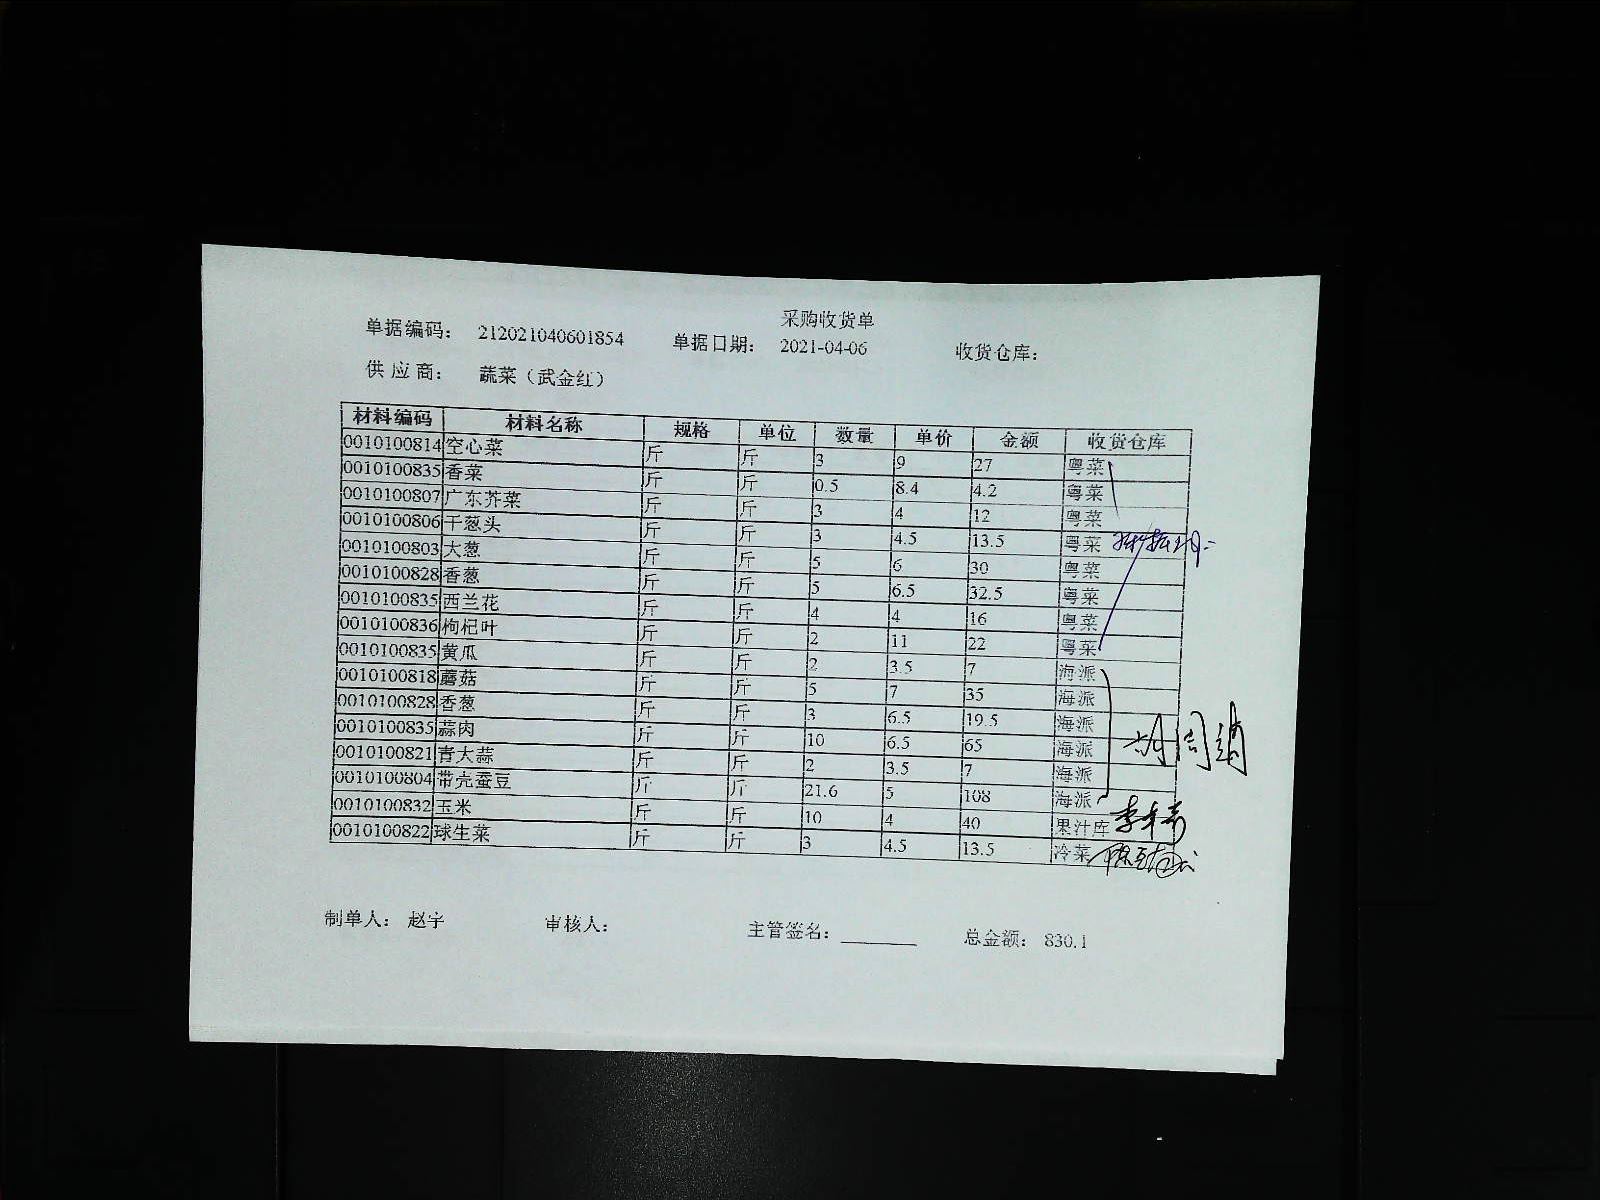 采购收货单
单据编码： 212021040601854 单据日期： 2021-04-06 收货仓库：
供应商： 蔬菜（武金红）
材料编码 材料名称 规格 单位 数量 单价 金额 收货仓库
0010100814 空心菜 斤 斤 3 9 27 粤菜
0010100835 香菜 斤 斤 0.5 8.4 4.2 粤菜
0010100807 广东芥菜 斤 斤 3 4 12 粤菜
0010100806 干葱头 斤 斤 3 4.5 13.5 粤菜
0010100803 大葱 斤 斤 5 6 30 粤菜
0010100828 香葱 斤 斤 5 6.5 32.5 粤菜
0010100835 西兰花 斤 斤 4 4 16 粤菜
0010100836 枸杞叶 斤 斤 2 11 22 粤菜
0010100835 黄瓜 斤 斤 2 3.5 7 海派
0010100818 蘑菇 斤 斤 5 7 35 海派
0010100828 香葱 斤 斤 3 6.5 19.5 海派
0010100835 蒜肉 斤 斤 10 6.5 65 海派
0010100821 青大蒜 斤 斤 2 3.5 7 海派
0010100804 带壳蚕豆 斤 斤 21.6 5 108 海派
0010100832 玉米 斤 斤 10 4 40 果汁库
0010100822 球生菜 斤 斤 3 4.5 13.5 冷菜
制单人： 赵宇 审核人： 主管签名： 总金额： 830.1